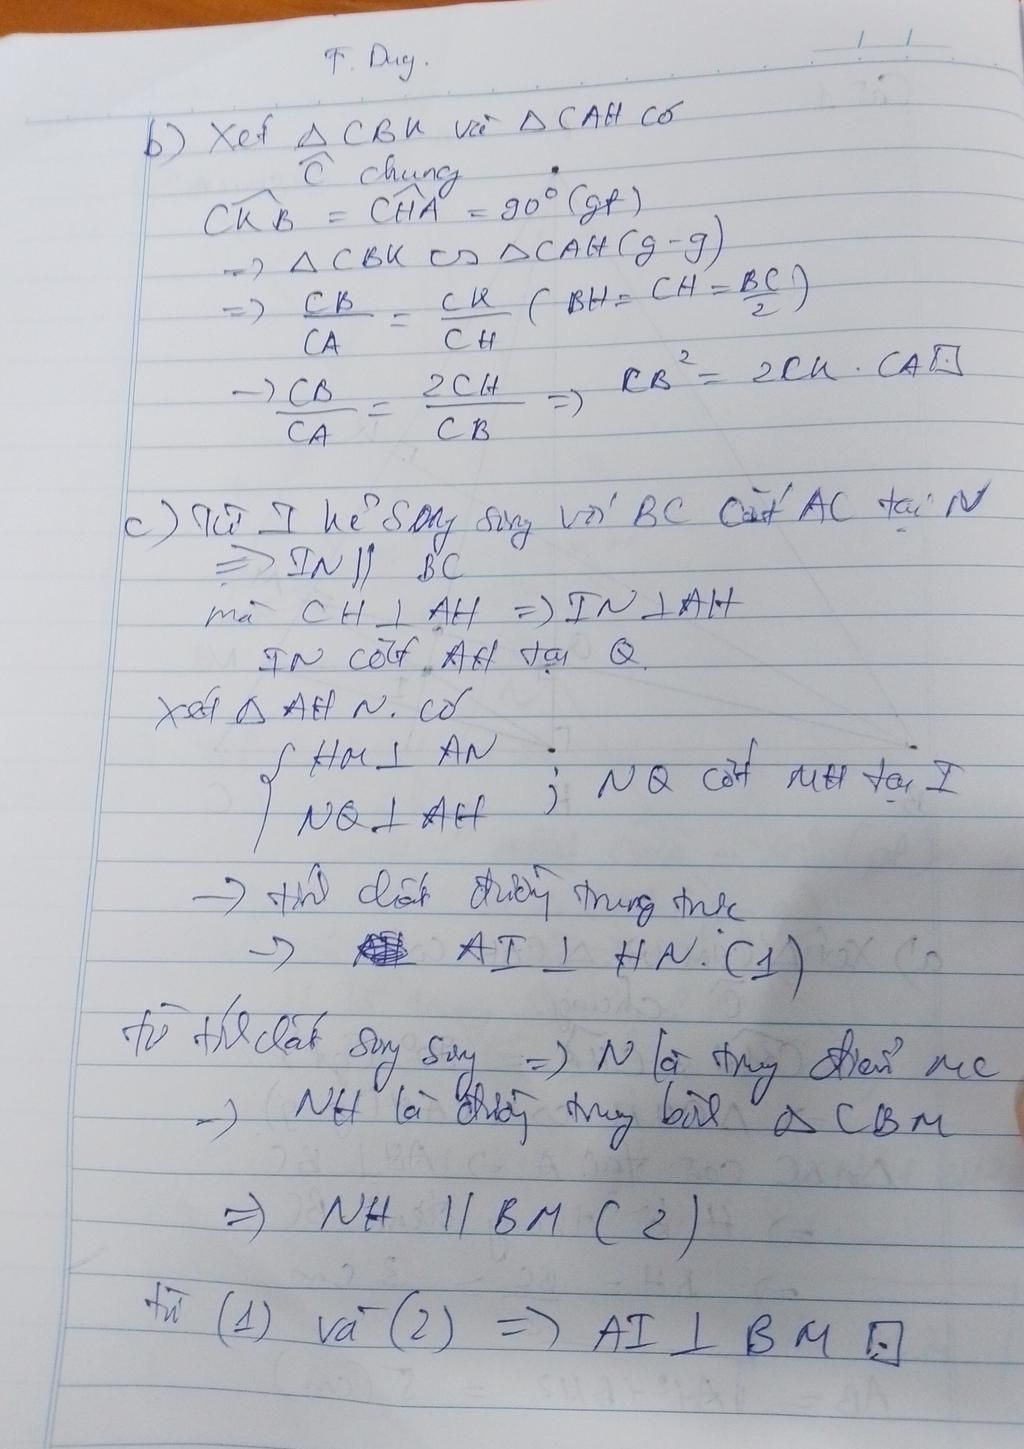 T. Duy.
b) Xét △ CBK và △ CAH có
Ĉ chung
CKB = CHA = 90° (gt)
=> △ CBK ∽ △ CAH (g-g)
=> CB/CA = CK/CH ( BH = CH = BC/2 )
=> CB/CA = 2CH/CB => CB² = 2CK . CA
c) Từ I kẻ song song với BC cắt AC tại N
=> IN || BC
mà CH ⊥ AH => IN ⊥ AH
IN cắt AH tại Q.
Xét △ AHN. có
{ HM ⊥ AN
NQ ⊥ AH ; NQ cắt MH tại I
=> t/c chất đường trung trực
=> AI ⊥ HN. (1)
từ t/c chất song song => N là trung điểm MC
=> NH là đường trung bình △ CBM
=> NH // BM (2)
từ (1) và (2) => AI ⊥ BM